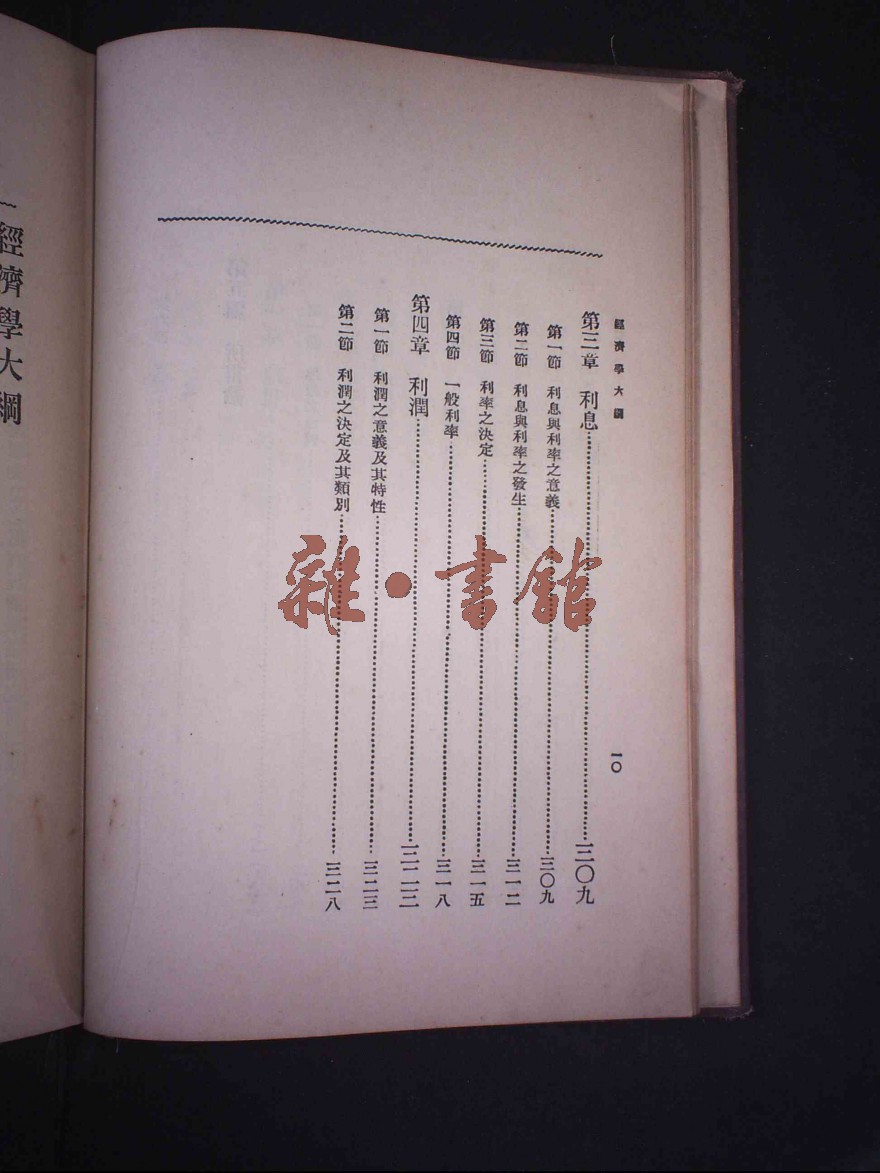 經濟學大綱
一〇
第三章 利息……三〇九
第一節 利息與利率之意義……三〇九
第二節 利息與利率之發生……三一二
第三節 利率之決定……三一五
第四節 一般利率……三一八
第四章 利潤……三二三
第一節 利潤之意義及其特性……三二三
第二節 利潤之決定及其類別……三二八
雜·書館
經濟學大綱